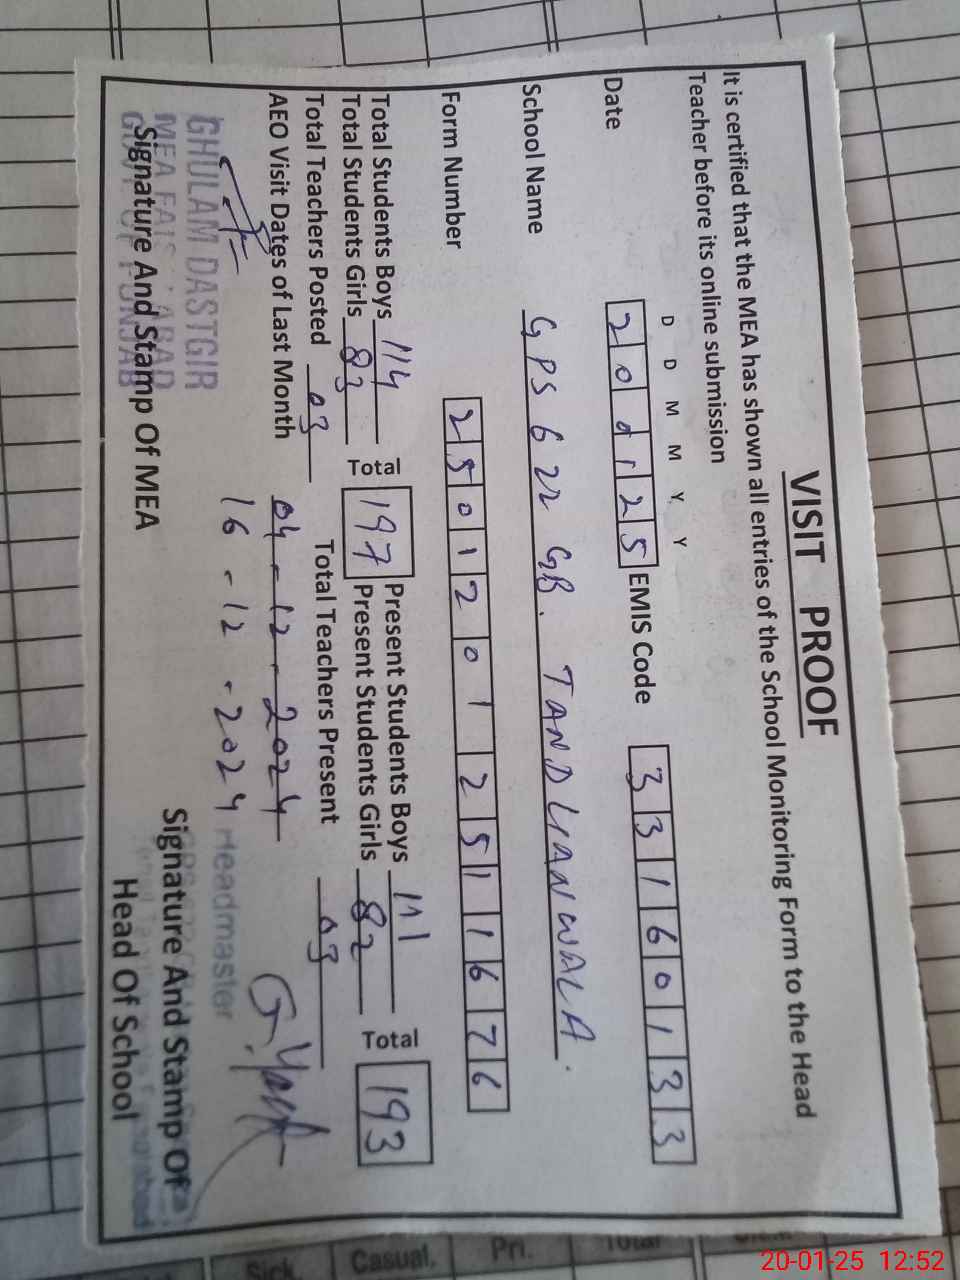 VISIT PROOF
It is certified that the MEA has shown all entries of the School Monitoring Form to the Head
Teacher before its online submission
D D M M Y Y
Date 200125 EMIS Code 33160133
School Name GPS 622 GB. TANDLIANWALA.
Form Number 25012012511676
Total Students Boys 114 Total 197 Present Students Boys 111 Total 193
Total Students Girls 83 Present Students Girls 82
Total Teachers Posted 03 Total Teachers Present 03
AEO Visit Dates of Last Month 04-12-2024
16-12-2024
GHULAM DASTGIR
MEA
Headmaster
Signature And Stamp Of MEA
Signature And Stamp Of
Head Of School
Sick. Casual. Pri. Total
20-01-25 12:52